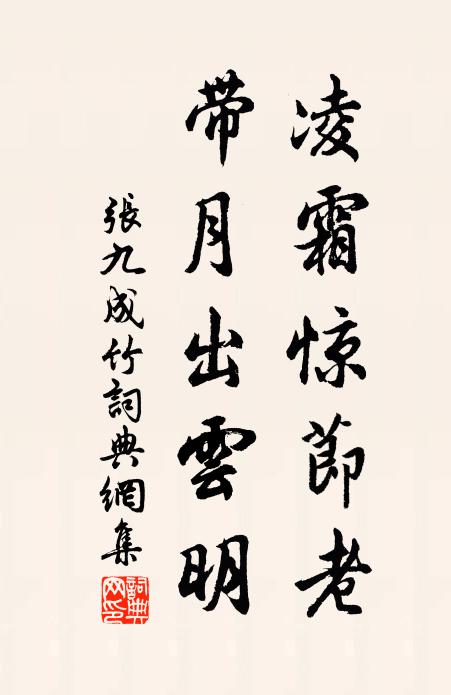 凌霜惊節老
带月出雲明
張九成竹詞典網集
詞典网印